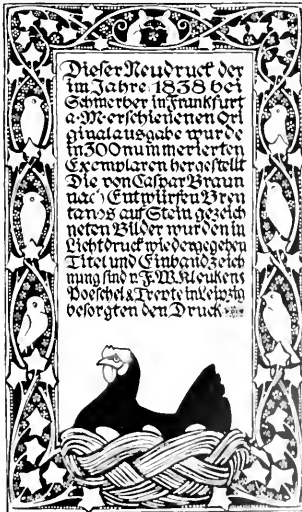 Dieser Neudruck der
im Jahre 1838 bei
Schmerber in Frankfurt
a. M. erschienenen Ori
ginalausgabe wurde
in 300 nummerierten
Exemplaren hergestellt
Die von Caspar Braun
nach Entwürfen Bren
tanos auf Stein gezeich
neten Bilder wurden in
Lichtdruck wiedergegeben
Titel und Einbandzeich
nung sind v. F. W. Kleukens
Poeschel & Trepte in Leipzig
besorgten den Druck